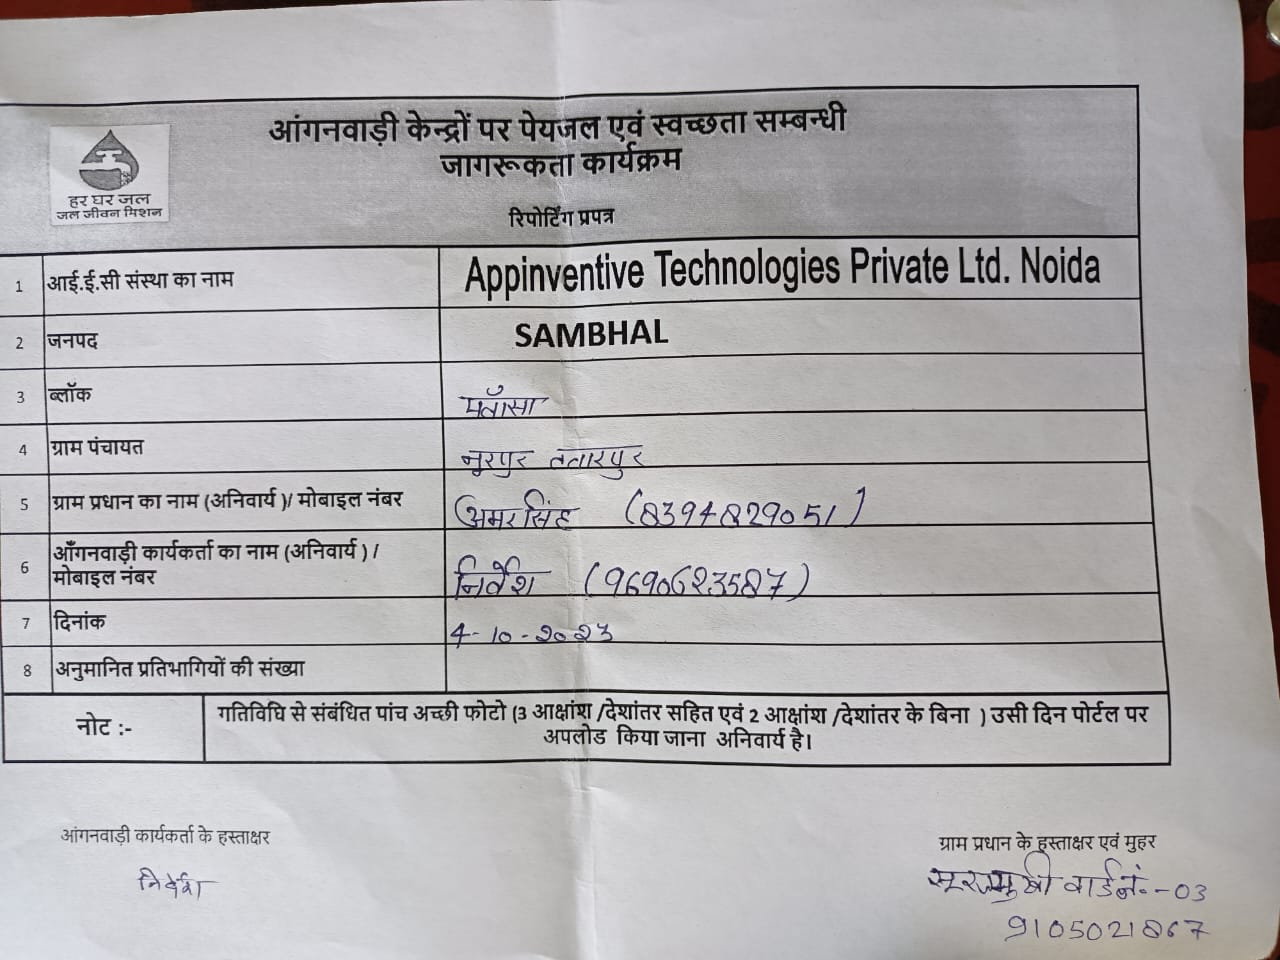 आंगनवाड़ी केन्द्रों पर पेयजल एवं स्वच्छता सम्बन्धी
जागरूकता कार्यक्रम
हर घर जल
जल जीवन मिशन
रिपोर्टिंग प्रपत्र
1 आई.ई.सी संस्था का नाम Appinventive Technologies Private Ltd. Noida
2 जनपद SAMBHAL
3 ब्लॉक पवाँसा
4 ग्राम पंचायत नूरपुर ततारपुर
5 ग्राम प्रधान का नाम (अनिवार्य )/ मोबाइल नंबर अमर सिंह (8394829051)
6 आँगनवाड़ी कार्यकर्ता का नाम (अनिवार्य ) /
मोबाइल नंबर निर्वेश (9690623587)
7 दिनांक 4-10-2023
8 अनुमानित प्रतिभागियों की संख्या
नोट :- गतिविधि से संबंधित पांच अच्छी फोटो (3 आक्षांश /देशांतर सहित एवं 2 आक्षांश /देशांतर के बिना ) उसी दिन पोर्टल पर
अपलोड किया जाना अनिवार्य है।
आंगनवाड़ी कार्यकर्ता के हस्ताक्षर
निर्देश
ग्राम प्रधान के हुस्ताक्षर एवं मुहर
सूरजमुखी वार्ड नं.-03
9105021867